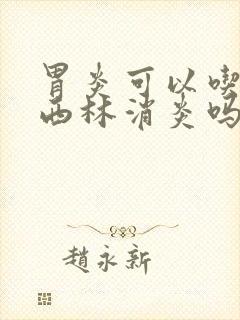 胃炎可以喫
西林消炎吗
趙永新